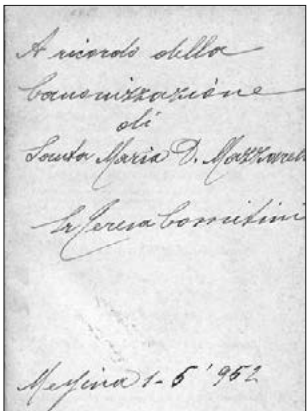 A ricordo della
Canonizzazione
di
Santa Maria D. Mazzarello
Sr Teresa Comitini
Messina 1-5-'952